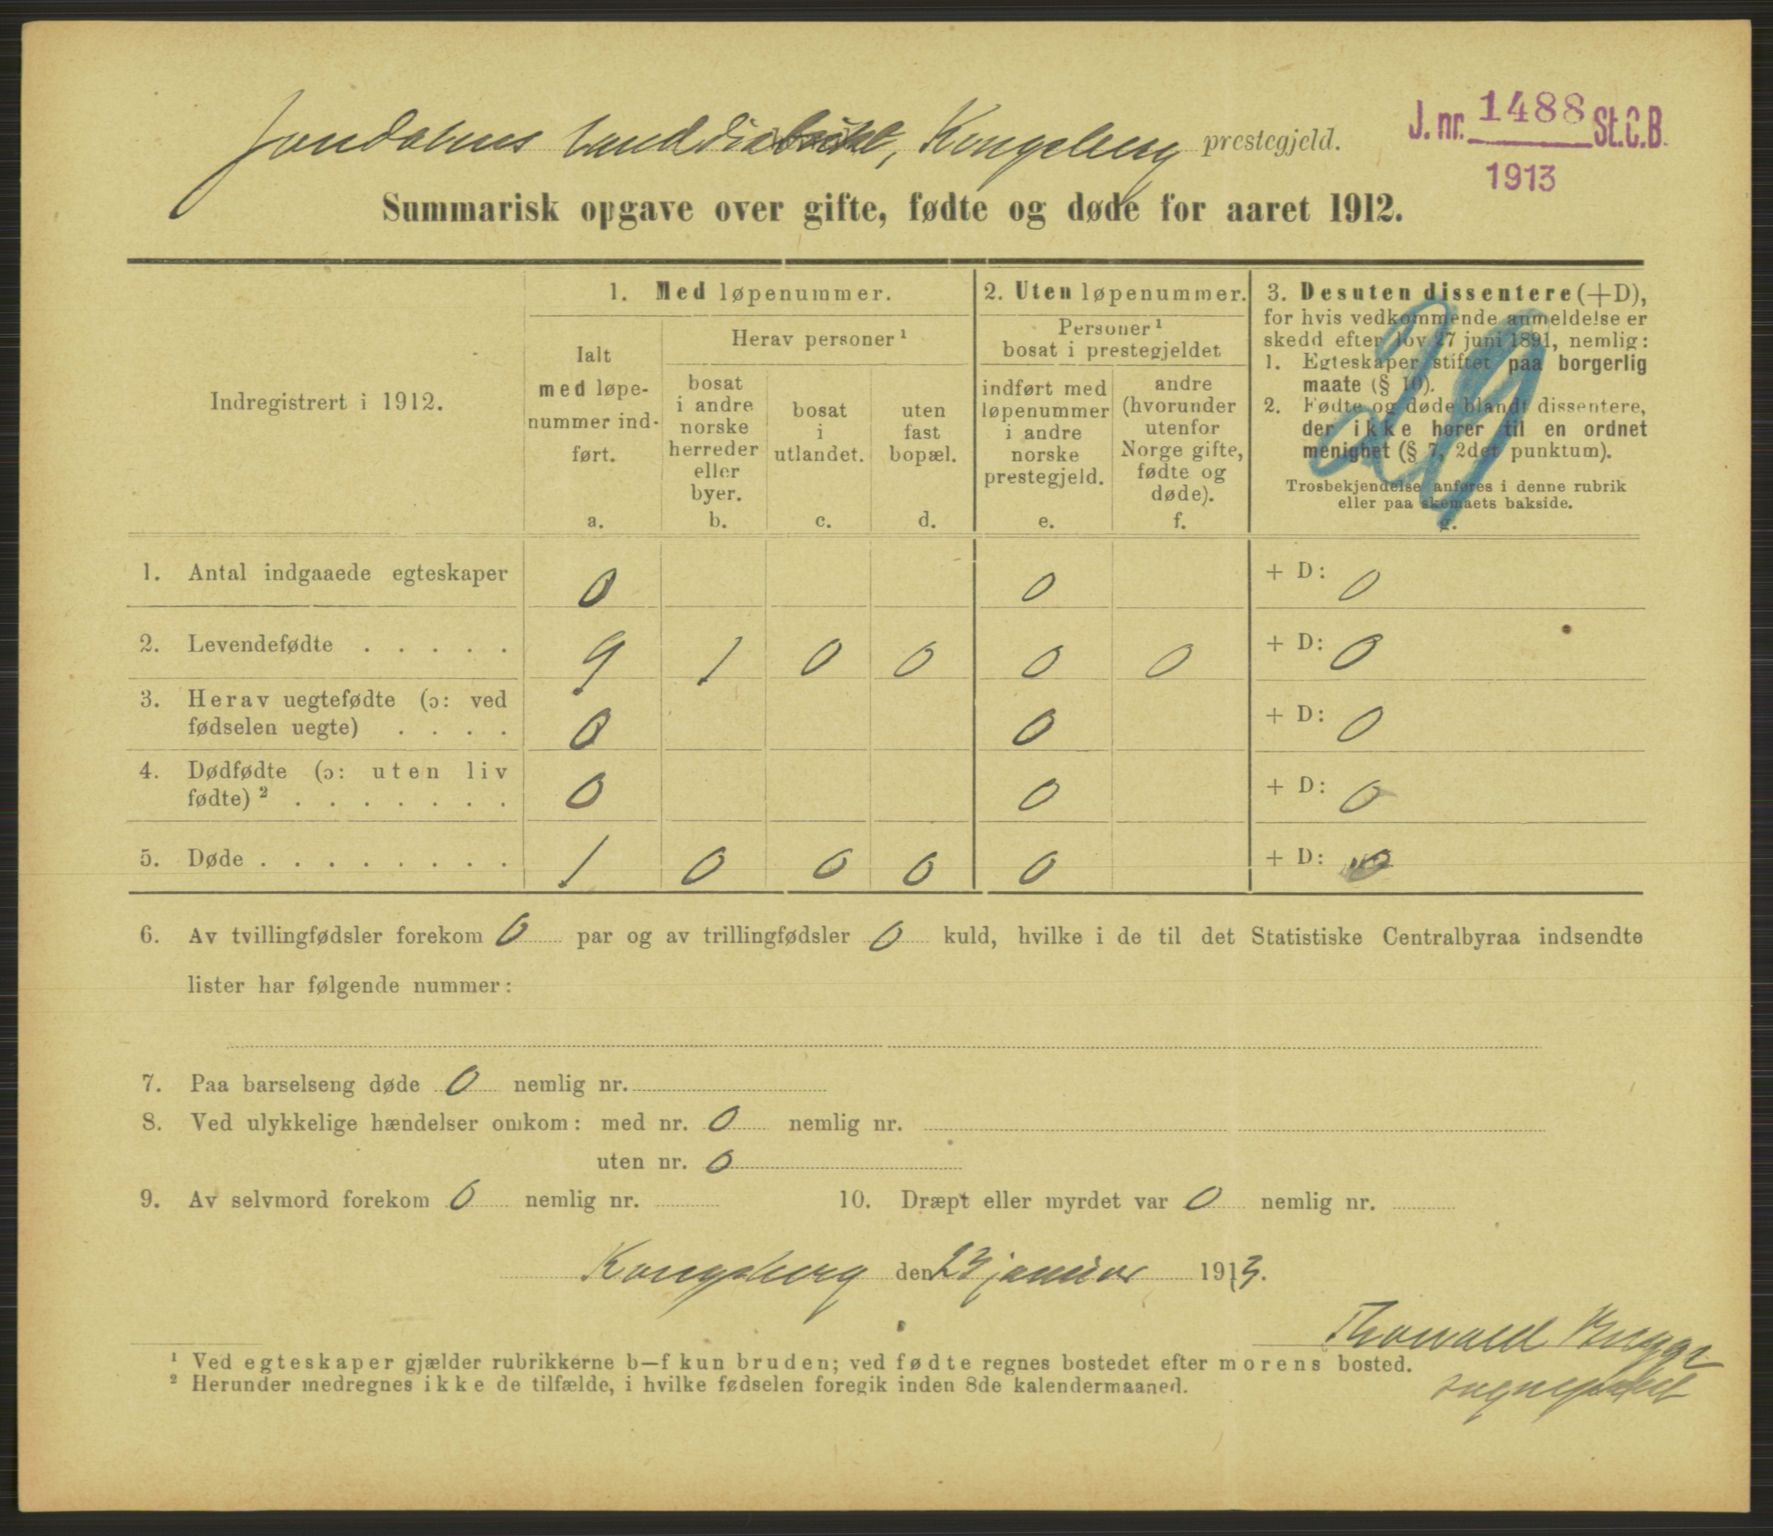 Jondalens landdistrikt, Kongsberg prestegjeld.
J. nr. 1488 St. C. B.
1913
Summarisk opgave over gifte, fødte og døde for aaret 1912.
Indregistrert i 1912.
1. Med løpenummer.
Ialt
med løpe-
nummer ind-
ført.
a.
Herav personer ¹
bosat
i andre
norske
herreder
eller
byer.
b.
bosat
i
utlandet.
c.
uten
fast
bopæl.
d.
2. Uten løpenummer.
Personer ¹
bosat i prestegjeldet
indført med
løpenummer
i andre
norske
prestegjeld.
e.
andre
(hvorunder
utenfor
Norge gifte,
fødte og
døde).
f.
3. Desuten dissentere (+D),
for hvis vedkommende anmeldelse er
skedd efter lov 27 juni 1891, nemlig:
1. Egteskaper stiftet paa borgerlig
maate (§ 10).
2. Fødte og døde blandt dissentere,
der ikke hører til en ordnet
menighet (§ 7, 2det punktum).
Trosbekjendelse anføres i denne rubrik
eller paa skemaets bakside.
g.
1. Antal indgaaede egteskaper 0 0 + D: 0
2. Levendefødte . . . . . 9 1 0 0 0 0 + D: 0
3. Herav uegtefødte (ɔ: ved
fødselen uegte) . . . . 0 0 + D: 0
4. Dødfødte (ɔ: uten liv
fødte) ² . . . . . . . 0 0 + D: 0
5. Døde . . . . . . . . 1 0 0 0 0 + D: 0
6. Av tvillingfødsler forekom 0 par og av trillingfødsler 0 kuld, hvilke i de til det Statistiske Centralbyraa indsendte
lister har følgende nummer:
7. Paa barselseng døde 0 nemlig nr.
8. Ved ulykkelige hændelser omkom: med nr. 0 nemlig nr.
uten nr. 0
9. Av selvmord forekom 0 nemlig nr. 10. Dræpt eller myrdet var 0 nemlig nr.
Kongsberg den 23 januar 1913.
Thorvald Bugge
sogneprest
¹ Ved egteskaper gjælder rubrikkerne b—f kun bruden; ved fødte regnes bostedet efter morens bosted.
² Herunder medregnes ikke de tilfælde, i hvilke fødselen foregik inden 8de kalendermaaned.